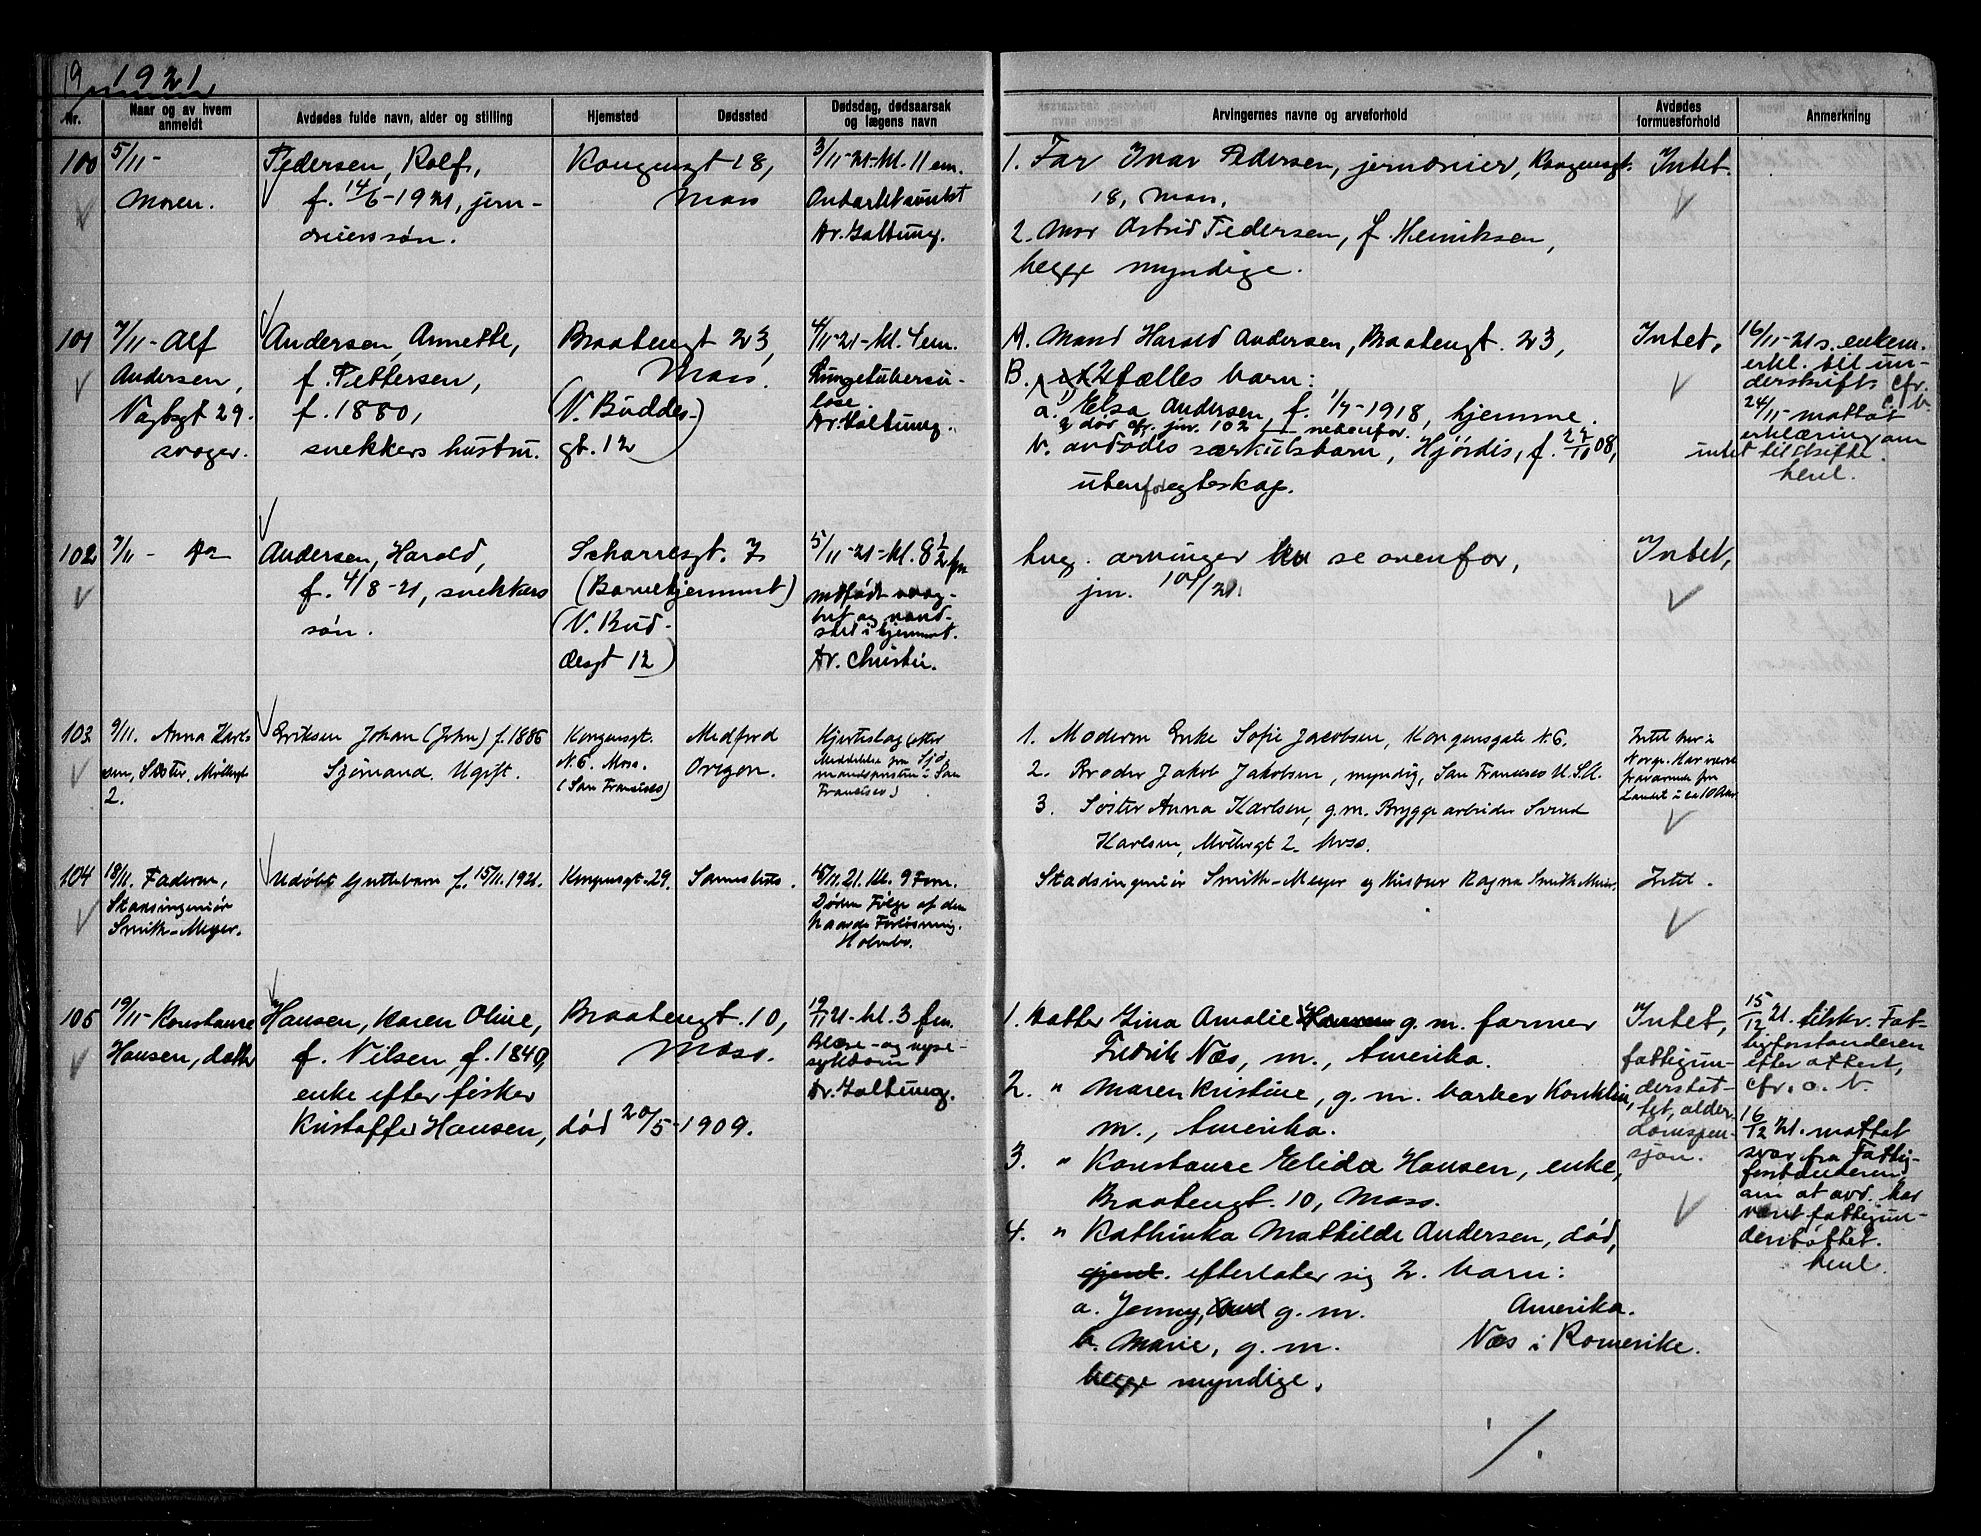 19 1921
Nr.
Naar og av hvem anmeldt
Avdødes fulde navn, alder og stilling
Hjemsted
Dødssted
Dødsdag, dødsaarsak og lægens navn
Arvingernes navne og arveforhold
Avdødes formuesforhold
Anmerkning
100
5/11 -
Moren.
Pedersen, Rolf,
f. 14/6-1921, jern-
søn.
Kongensgt 18,
Moss
3/11-21-kl. 11 em.
Dr. Galtung.
1. Far Ivar Pedersen, Kongensgt.
18, Moss.
2. Mor Astrid Pedersen, f. Henriksen,
begge myndige.
Intet.
101
7/11 - Alf
Andersen,
29.
svoger.
Andersen, Annette,
f. Pettersen,
f. 1880,
snekkers hustru.
Braatengt 23,
Moss.
(V. Buddes-)
gt. 12
4/11-21-kl. 4 em.
Lungetubersu-
lose.
Dr. Galtung.
A. Mand Harald Andersen, Braatengt. 23,
B. 2 fælles barn:
a. Elsa Andersen, f. 1/7-1918, hjemme.
g dør cfr. jnr. 102 nedenfor.
b. avdødes særkulsbarn, Hjørdis, f. 27/10 08,
utenfor egteskap.
Intet,
16/11-21 s. enkem.
erkl. til un-
derskrift cfr.
c. b.
24/11- mottat
erklæring om
intet til skifte.
henl.
102
7/11 - Do
Andersen, Harald,
f. 4/8-21, snekkers
søn.
Scharresgt. 7
(Barnehjemmet)
(V. Bud-
desgt 12)
5/11-21-kl. 8 1/2 fm
medfødt svag-
het og vand-
Dr. Christie.
arvinger se ovenfor,
jnr. 101/21.
Intet,
103
9/11. Anna Karl-
sen, Søster, Møllergt
2.
Eriksen Johan (John) f. 1886
Sjømand. Ugift.
Kongensgt.
N. 6. Moss.
(San Francisco)
Medford
Oregon.
Hjerteslag (efter
Meddelelse fra Sjø-
mandspresten i San
Francisco)
1. Moderen Enke Sofie Jacobsen, Kongensgate N. 6.
2. Broder Jakob Jakobsen, myndig, San Francisco U.S.A.
3. Søster Anna Karlsen, g.m. Bryggearbeider Svend
Karlsen, Møllergt 2. Moss.
Intet her i
Norge. Har været
fraværende fra
Landet i ca 10 Aar
104
18/11. Faderen,
Stadsingeniør
Smith-Meyer.
Udøbt Guttebarn f. 15/11. 1921.
Kongensgt. 29.
Sammesteds.
15/11.21. Kl. 9 Form.
Døden Følge af den
haarde Forløsning.
Holmbo.
Stadsingeniør Smith-Meyer og Hustru Ragna Smith-Meier.
Intet.
105
19/11- Konstanse
Hansen, datter
Hansen, Karen Oline,
f. Nilsen, f. 1840,
enke efter fisker
Kristoffer Hansen, død 20/5-1909.
Braatengt. 10,
Moss.
19/11 21-kl. 3 fm.
Blære- og nyre-
sykdom
Dr. Galtung.
1. Datter Gina Amalie Hansen g. m. farmer
Fredrik Næs, m., Amerika.
2. " Maren Kristine, g. m. barber Konklin,
m., Amerika.
3. " Konstanse Elida Hansen, enke,
Braatengt. 10, Moss.
4. " Kathinka Mathilde Andersen, død,
efterlater sig 2. barn:
a. Jenny, g. m. Amerika.
b. Marie, g. m. Næs i Romerike.
begge myndige.
Intet,
fattigun-
derstøt-
tet, alder-
domspen-
sjon.
15/12 21. tilskr. Fat-
tigforstanderen
efter attest,
cfr. c. b.
16/12 21. mottat
svar fra Fattig-
forstanderen
om at avd. har
været fattigun-
derstøttet.
henl.
./.